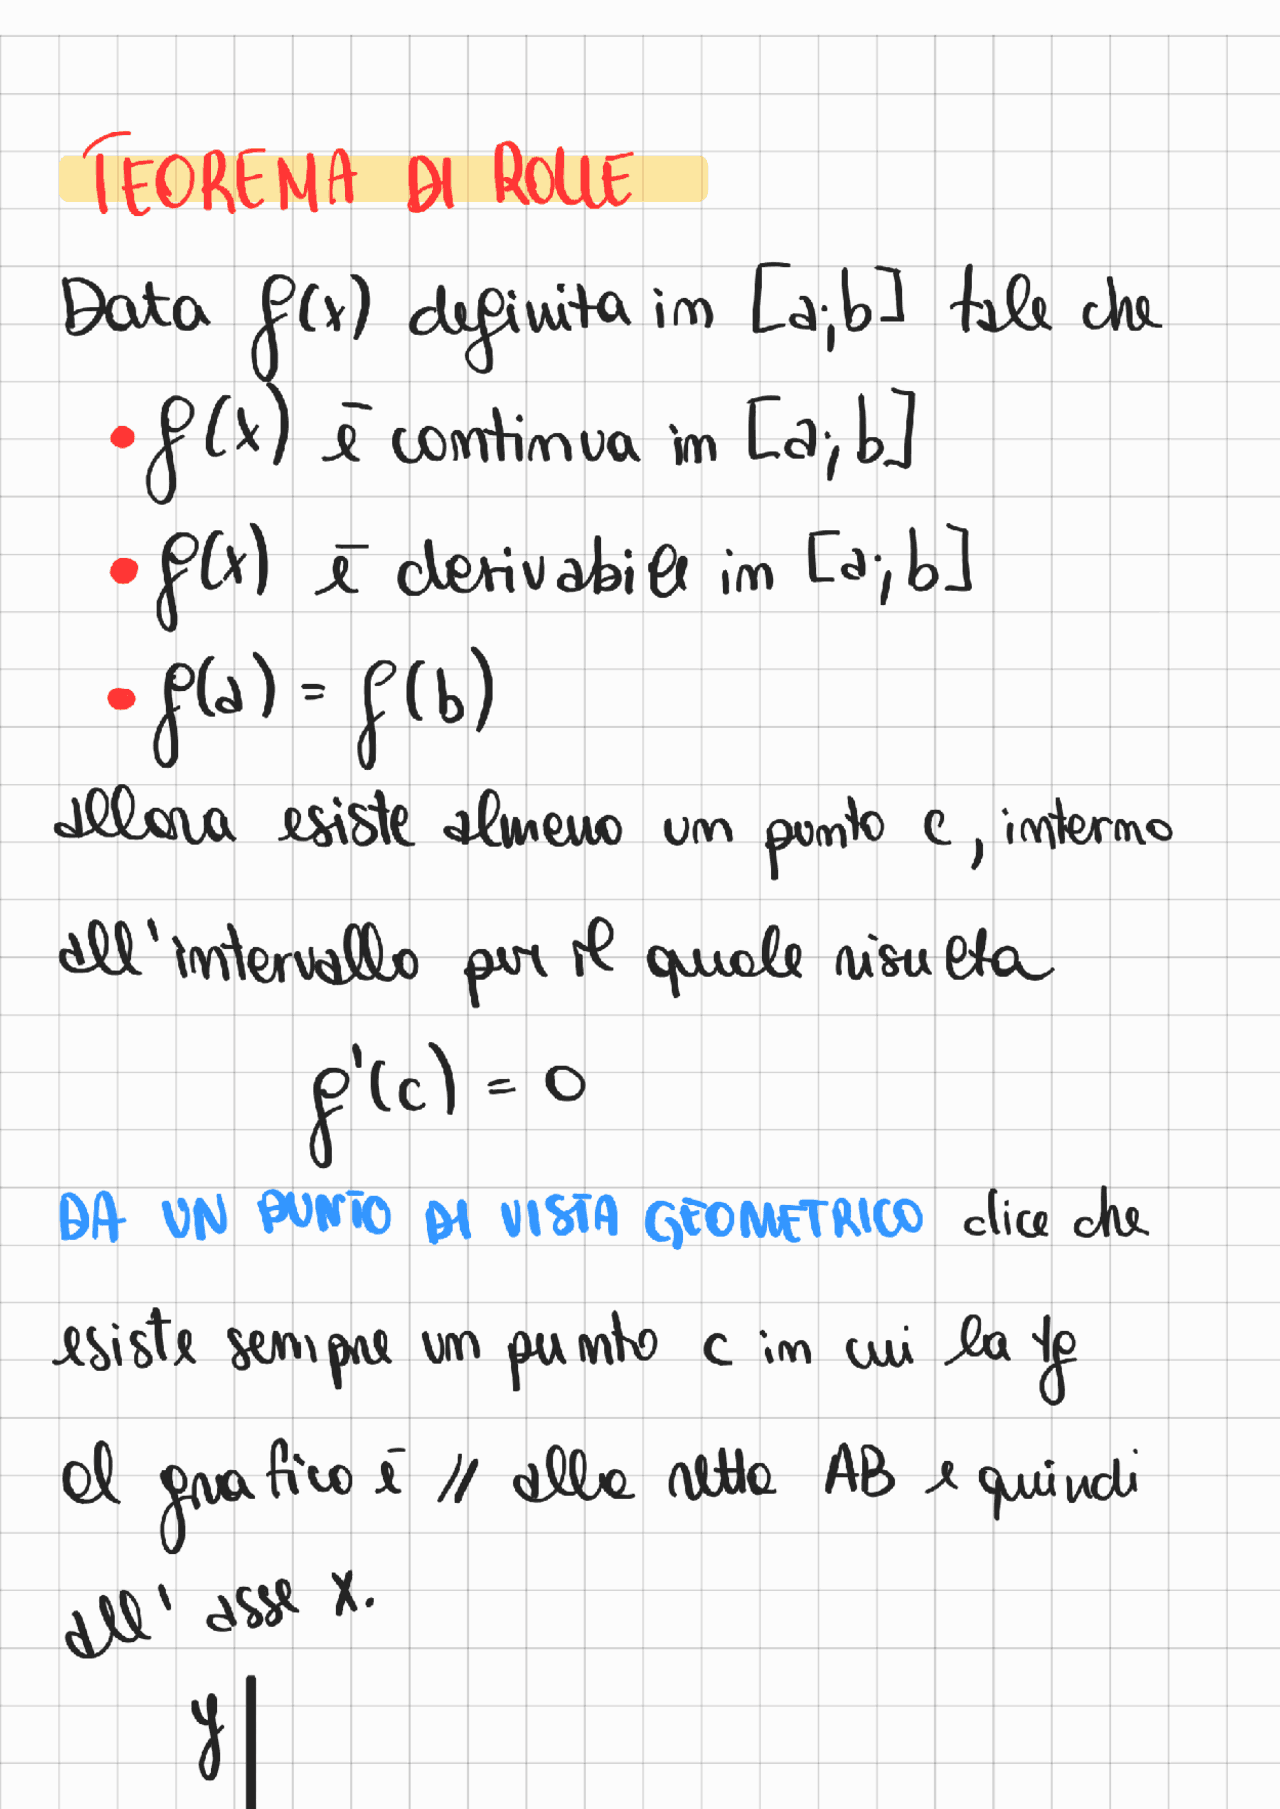 TEOREMA DI ROLLE
Data f(x) definita in [a;b] tale che
• f(x) è continua in [a;b]
• f(x) è derivabile in [a;b]
• f(a) = f(b)
allora esiste almeno un punto c, interno
all'intervallo per il quale risulta
f'(c) = 0
DA UN PUNTO DI VISTA GEOMETRICO dice che
esiste sempre un punto c in cui la tg
al grafico è // alla retta AB e quindi
all'asse x.
y